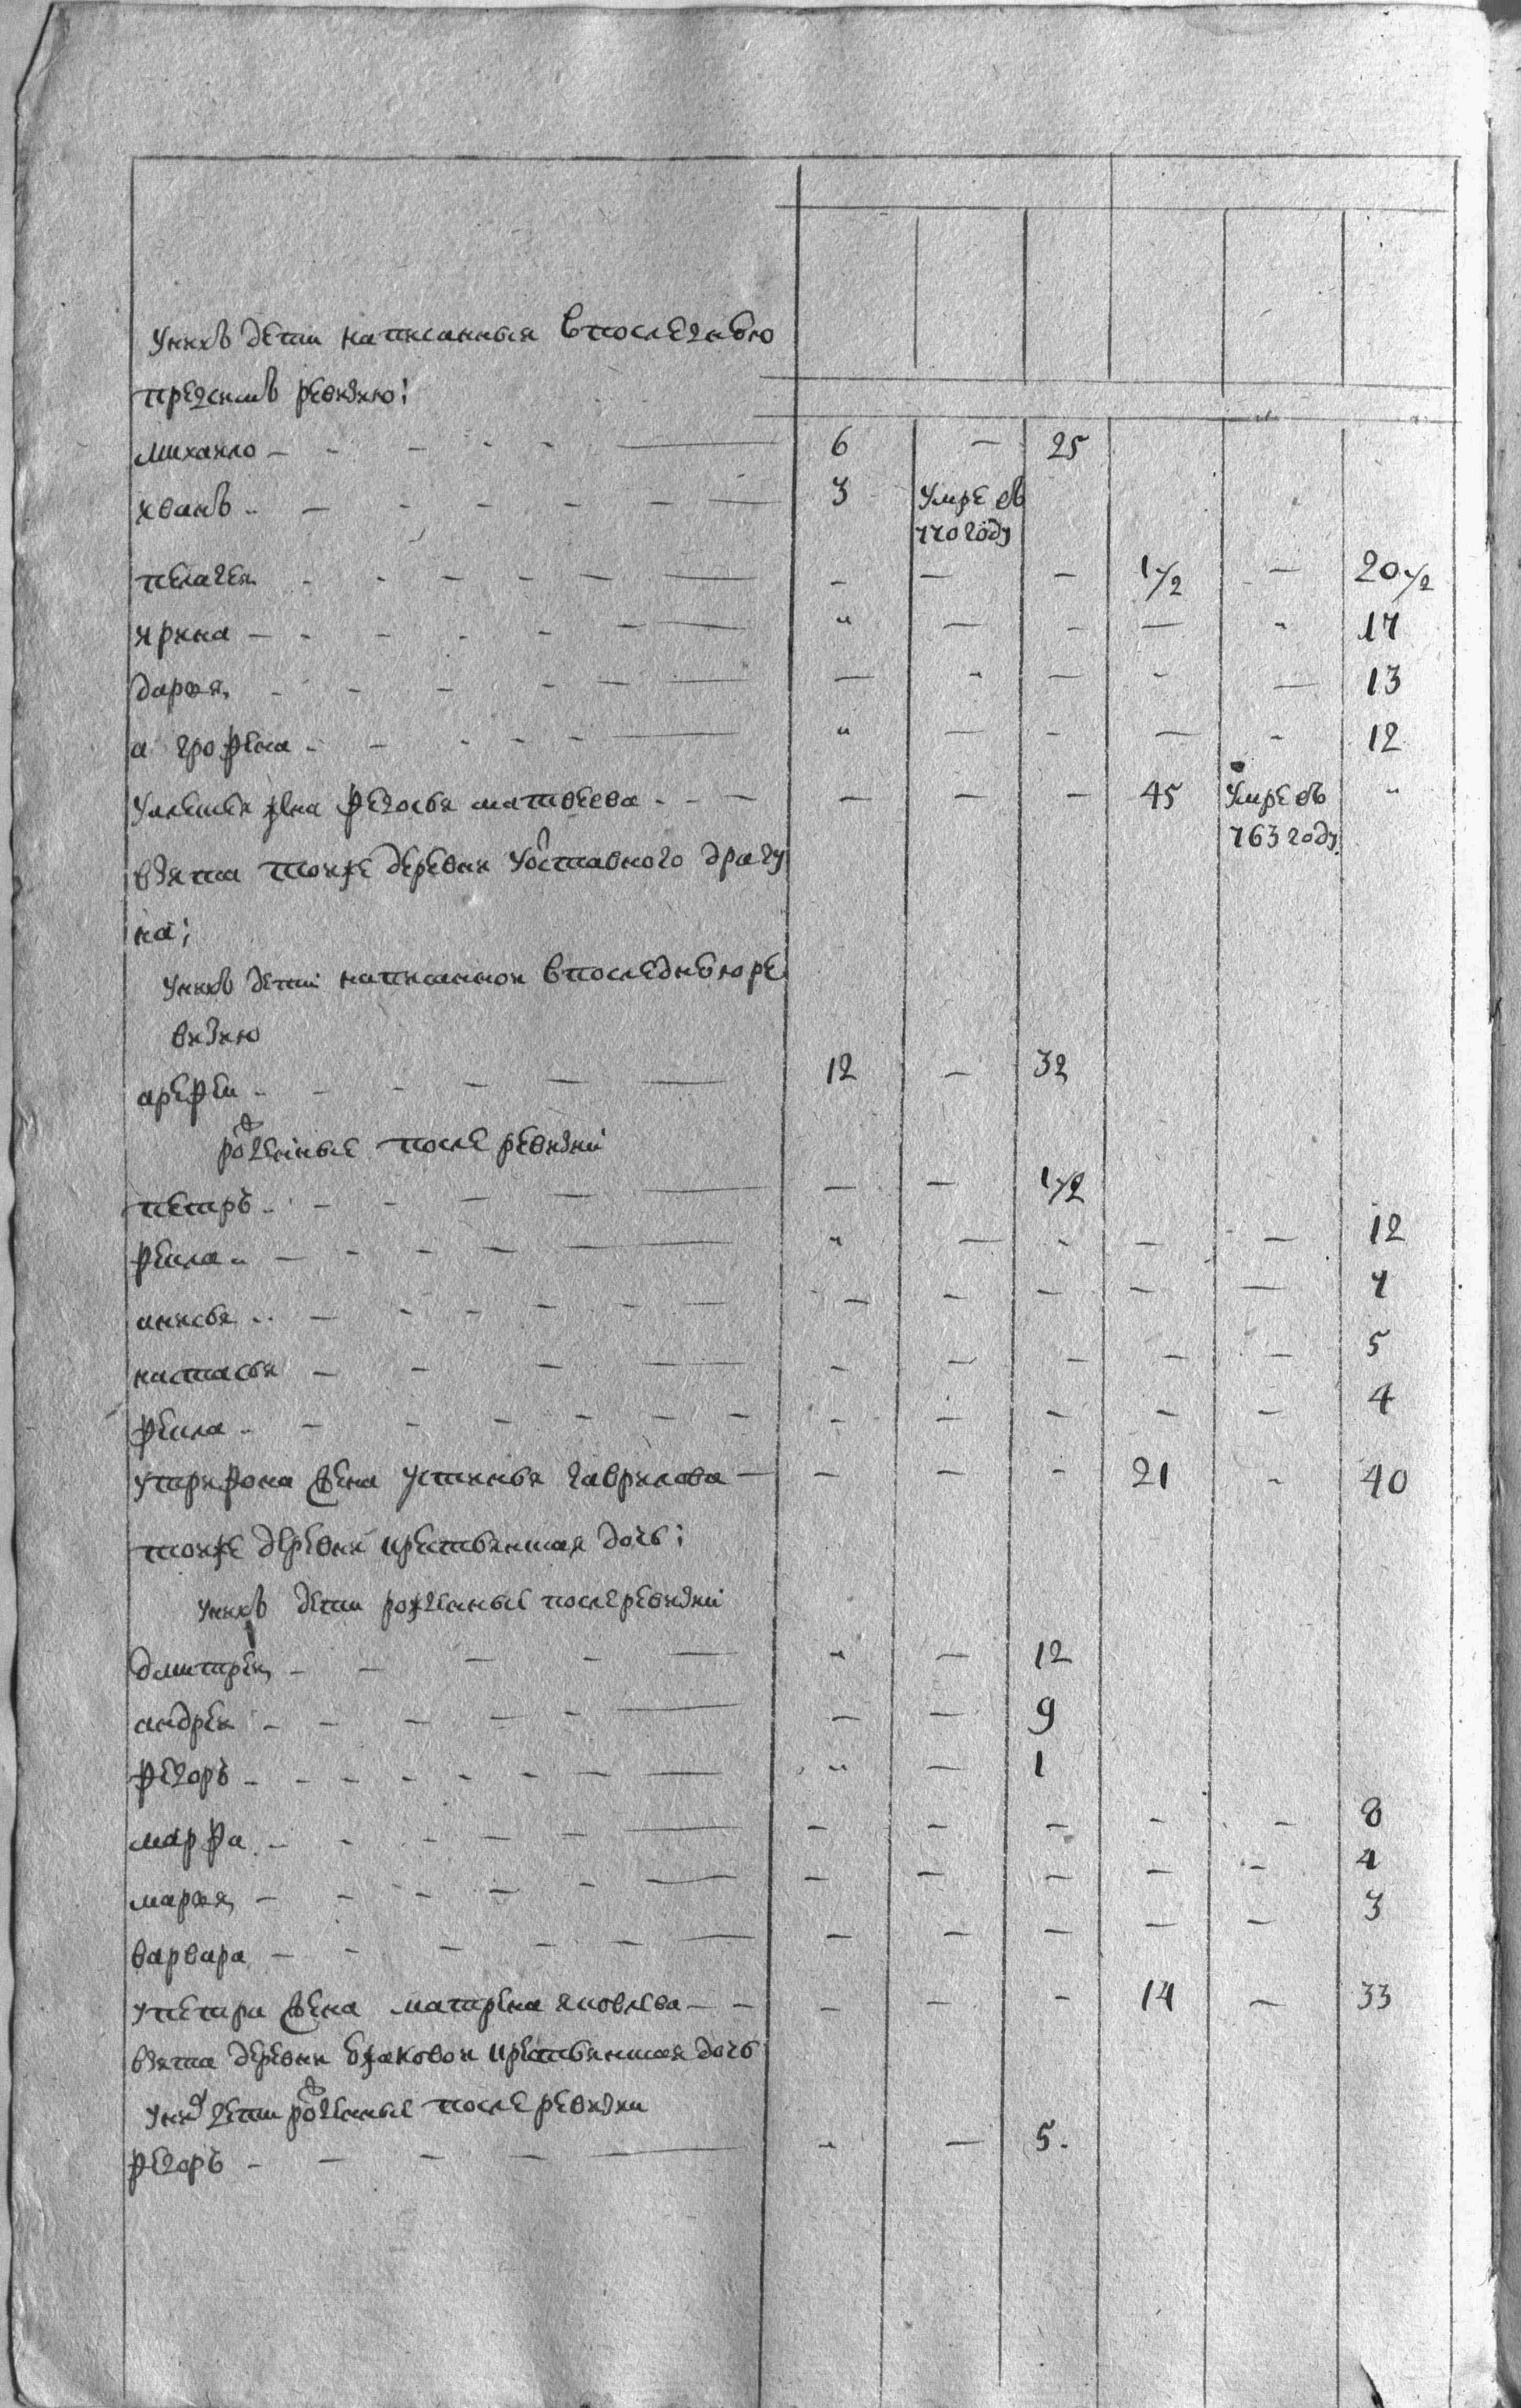 Унихъ дети написанныя впоследнею
предсимъ ревизию:
михаило — — — — — — 6 — 25
иванъ — — — — — — 3 Умре въ
770 году
пелагея — — — — — — — — — 1/2 — 20 1/2
ирина — — — — — — " — — — " 17
дарья — — — — — — — — — — — 13
а грофена — — — — — " — — — — 12
Уалексея жена федосья матвеева — — — — — — 45 Умре въ "
763 году
взята тоиже деревни драгу
на;
Унихъ дети написанной впоследнею ре
визию
арефеи — — — — — 12 — 32
рожденные после ревизии
петръ — — — — — — — 1/2
фекла — — — — — " — — — — 12
анисья — — — — — — — — — — 7
настасья — — — — — — — — — 5
фекла — — — — — — — — — — — — 4
Утрифона жена устинья гаврилова — — — — 21 — 40
тоиже деревни крестьянская дочь;
Унихъ дети рожденные послеревизии
дмитреи — — — — — " — 12
андреи — — — — — — — — 9
федоръ — — — — — — — — " — 1
марфа — — — — — — — — — — — 8
марья — — — — — — — — — — — 4
варвара — — — — — — — — — — — 3
Упетра жена матрена яковлева — — — — — 14 — 33
взята деревни крестьянская дочь
Унихъ дети рожденные после ревизии
федоръ — — — — — — — 5.